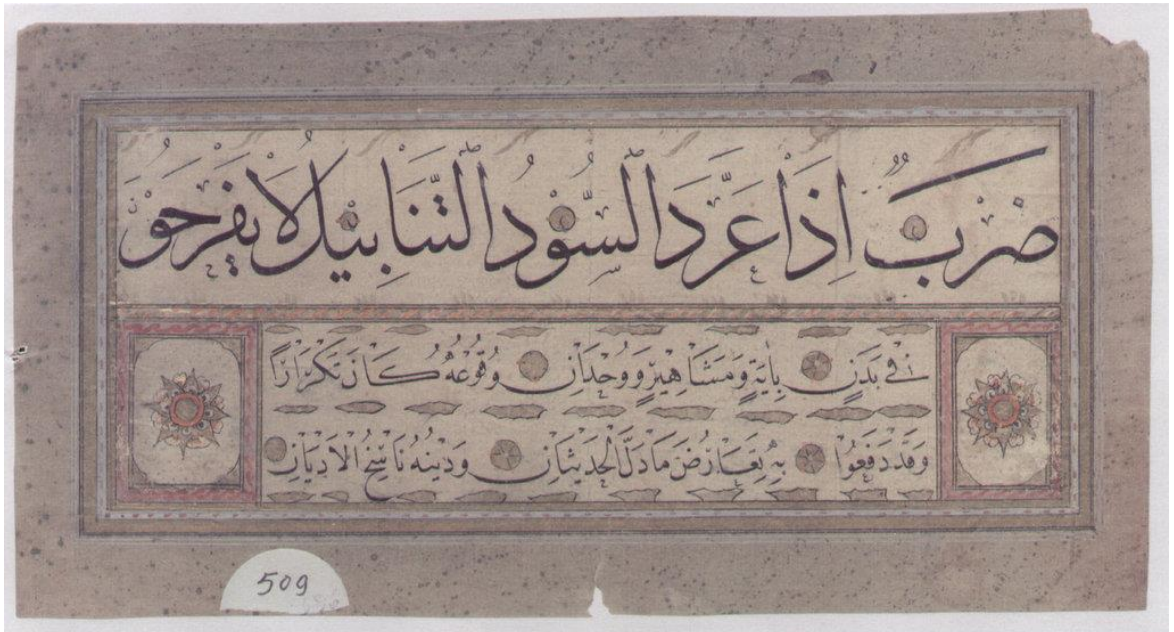 ضَرْبٌ اِذَا عَرَّدَ السُّودُ التَّنَابِيلُ لَا يَفْرَحُونَ
فِي بَدَنٍ بِاٰيَةٍ وَمَشَاهِيرٍ وَوُحْدَانِ وُقُوعُهُ كَانَ تَكْرَارًا
وَقَدْ دَفَعُوا بِهِ تَعَارُضَ مَا دَلَّ الْحَدِيثَانِ وَدِينُهُ نَاسِخُ الْاَدْيَانِ
509